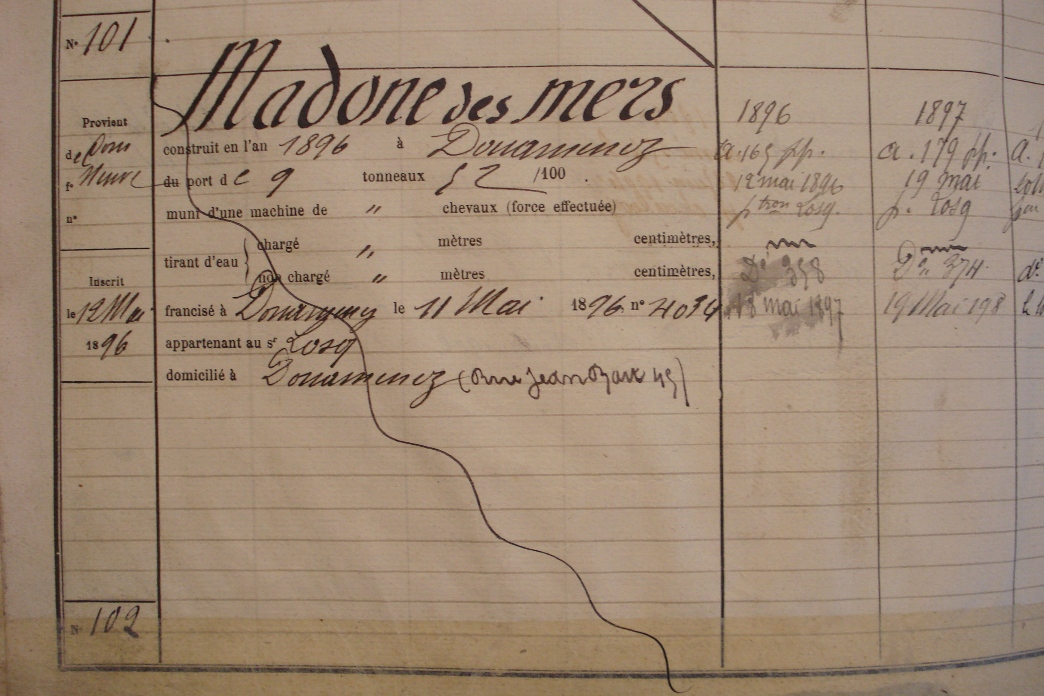 N° 101
Madone des mers
1896
1897
Provient
de
f°
n°
construit en l'an 1896 à Douarnenez
a. 165 pp.
a. 179 pp.
du port de 9 tonneaux 52/100.
12 mai 1896
19 mai
muni d'une machine de " chevaux (force effectuée)
ptron Losq.
p. Losq
tirant d'eau { chargé " mètres centimètres,
non chargé " mètres centimètres,
Dt 358
Dt 374.
Inscrit
le 12 Mai
1896
francisé à Douarnenez le 11 Mai 1896 n° 4034
18 mai 1897
19 Mai 198
appartenant au sr Losq
domicilié à Douarnenez (Rue Jean Bart 45)
N° 102